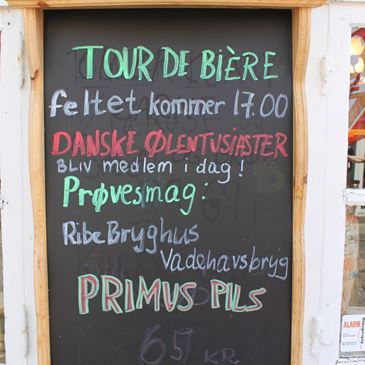 TOUR DE BIÈRE
feltet kommer 17.00
DANSKE ØLENTUSIASTER
BLIV medlem i dag!
Prøvesmag:
Ribe Bryghus
Vadehavsbryg
PRIMUS PILS
65 KR
ALARM